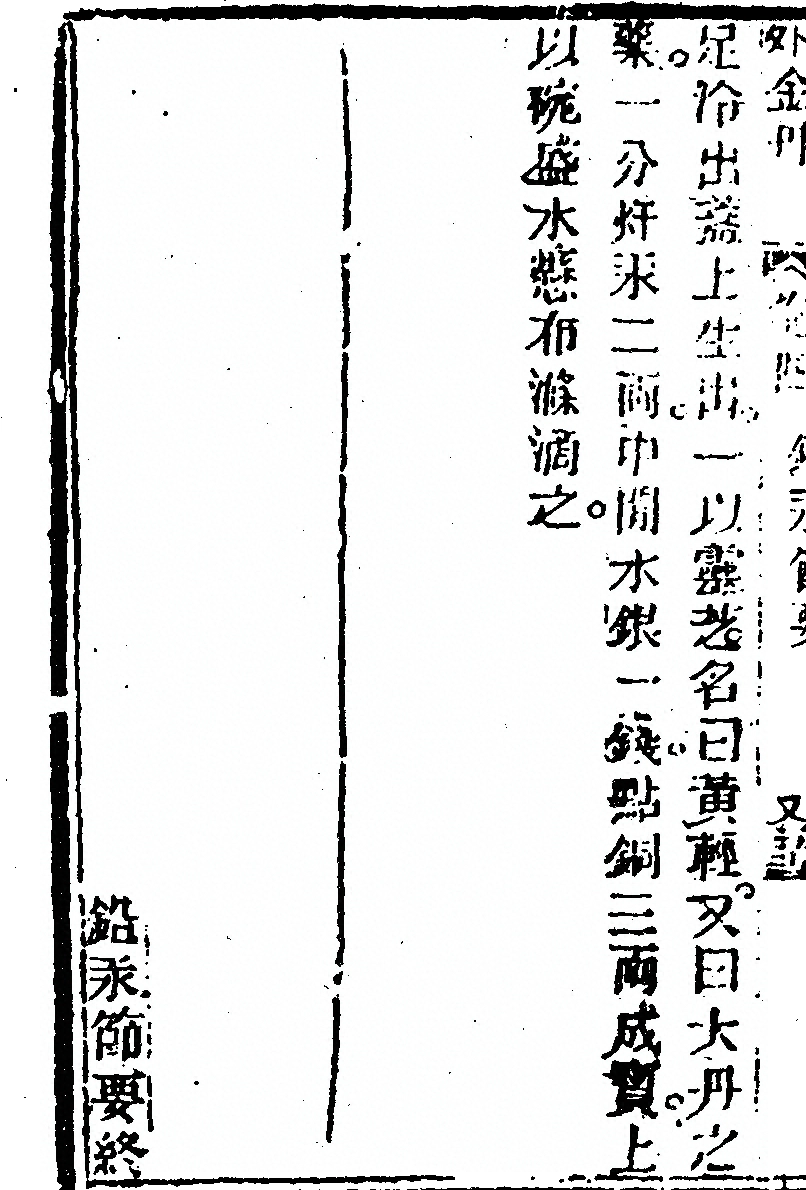 足冷出器上生出一以靈老名曰黃輕又曰大丹之
藥一分炸汞二兩中間水銀一錢點銅三兩成寶上
以碗盛水懸布滌滴之
鉛汞節要終